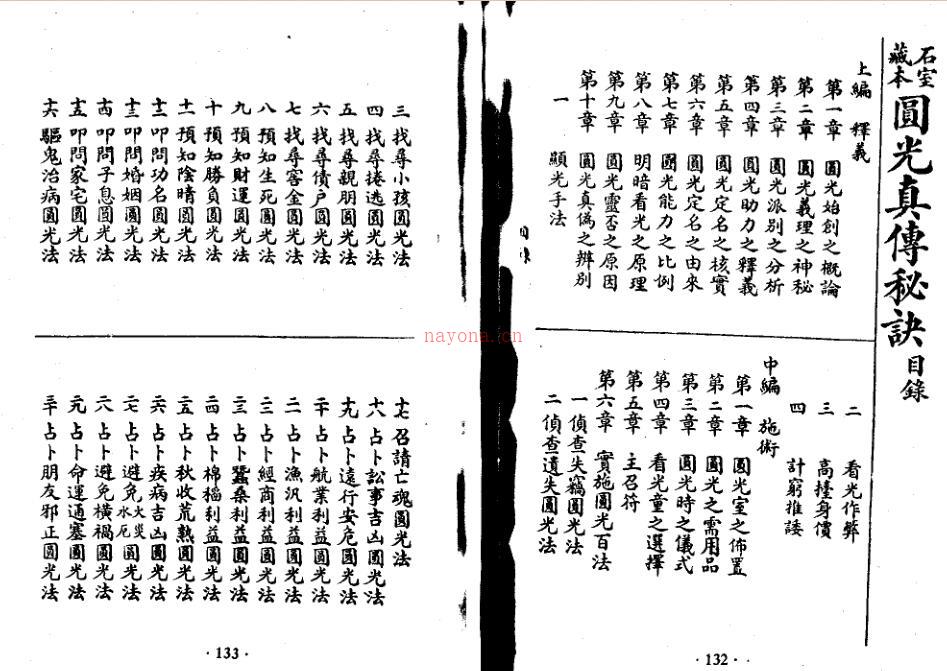 石室藏本圓光真傳秘訣目錄
上編 釋義
第一章 圓光始創之概論
第二章 圓光義理之神秘
第三章 圓光派別之分析
第四章 圓光助力之釋義
第五章 圓光定名之核實
第六章 圓光定名之由來
第七章 圓光能力之比例
第八章 明暗看光之原理
第九章 圓光靈否之原因
第十章 圓光真偽之辨別
一 顯光手法
二 看光作弊
三 高擡身價
四 計窮推諉
中編 施術
第一章 圓光室之佈置
第二章 圓光之需用品
第三章 圓光時之儀式
第四章 看光童之選擇
第五章 主召符
第六章 實施圓光百法
一 偵查失竊圓光法
二 偵查遺失圓光法
·132·
目錄
三 找尋小孩圓光法
四 找尋捲逃圓光法
五 找尋親朋圓光法
六 找尋債戶圓光法
七 找尋窖金圓光法
八 預知生死圓光法
九 預知財運圓光法
十 預知勝負圓光法
十一 預知陰晴圓光法
十二 叩問功名圓光法
十三 叩問婚姻圓光法
十四 叩問子息圓光法
十五 叩問家宅圓光法
十六 驅鬼治病圓光法
十七 召請亡魂圓光法
十八 占卜訟事吉凶圓光法
十九 占卜遠行安危圓光法
二十 占卜航業利益圓光法
二一 占卜漁汎利益圓光法
二二 占卜經商利益圓光法
二三 占卜蠶桑利益圓光法
二四 占卜棉稻利益圓光法
二五 占卜秋收荒熟圓光法
二六 占卜疾病吉凶圓光法
二七 占卜避免火災水厄圓光法
二八 占卜避免橫禍圓光法
二九 占卜命運通塞圓光法
三十 占卜朋友邪正圓光法
·133·
nayona.cn